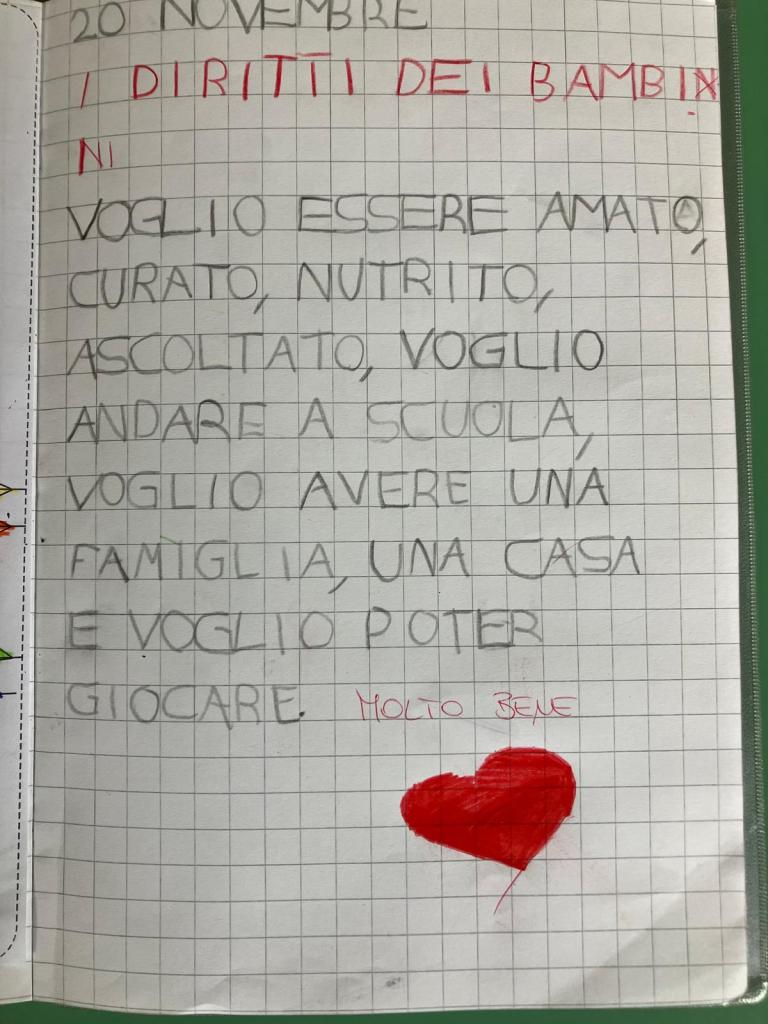 20 NOVEMBRE
I DIRITTI DEI BAMBI
NI
VOGLIO ESSERE AMATO,
CURATO, NUTRITO,
ASCOLTATO, VOGLIO
ANDARE A SCUOLA,
VOGLIO AVERE UNA
FAMIGLIA, UNA CASA
E VOGLIO POTER
GIOCARE. MOLTO BENE